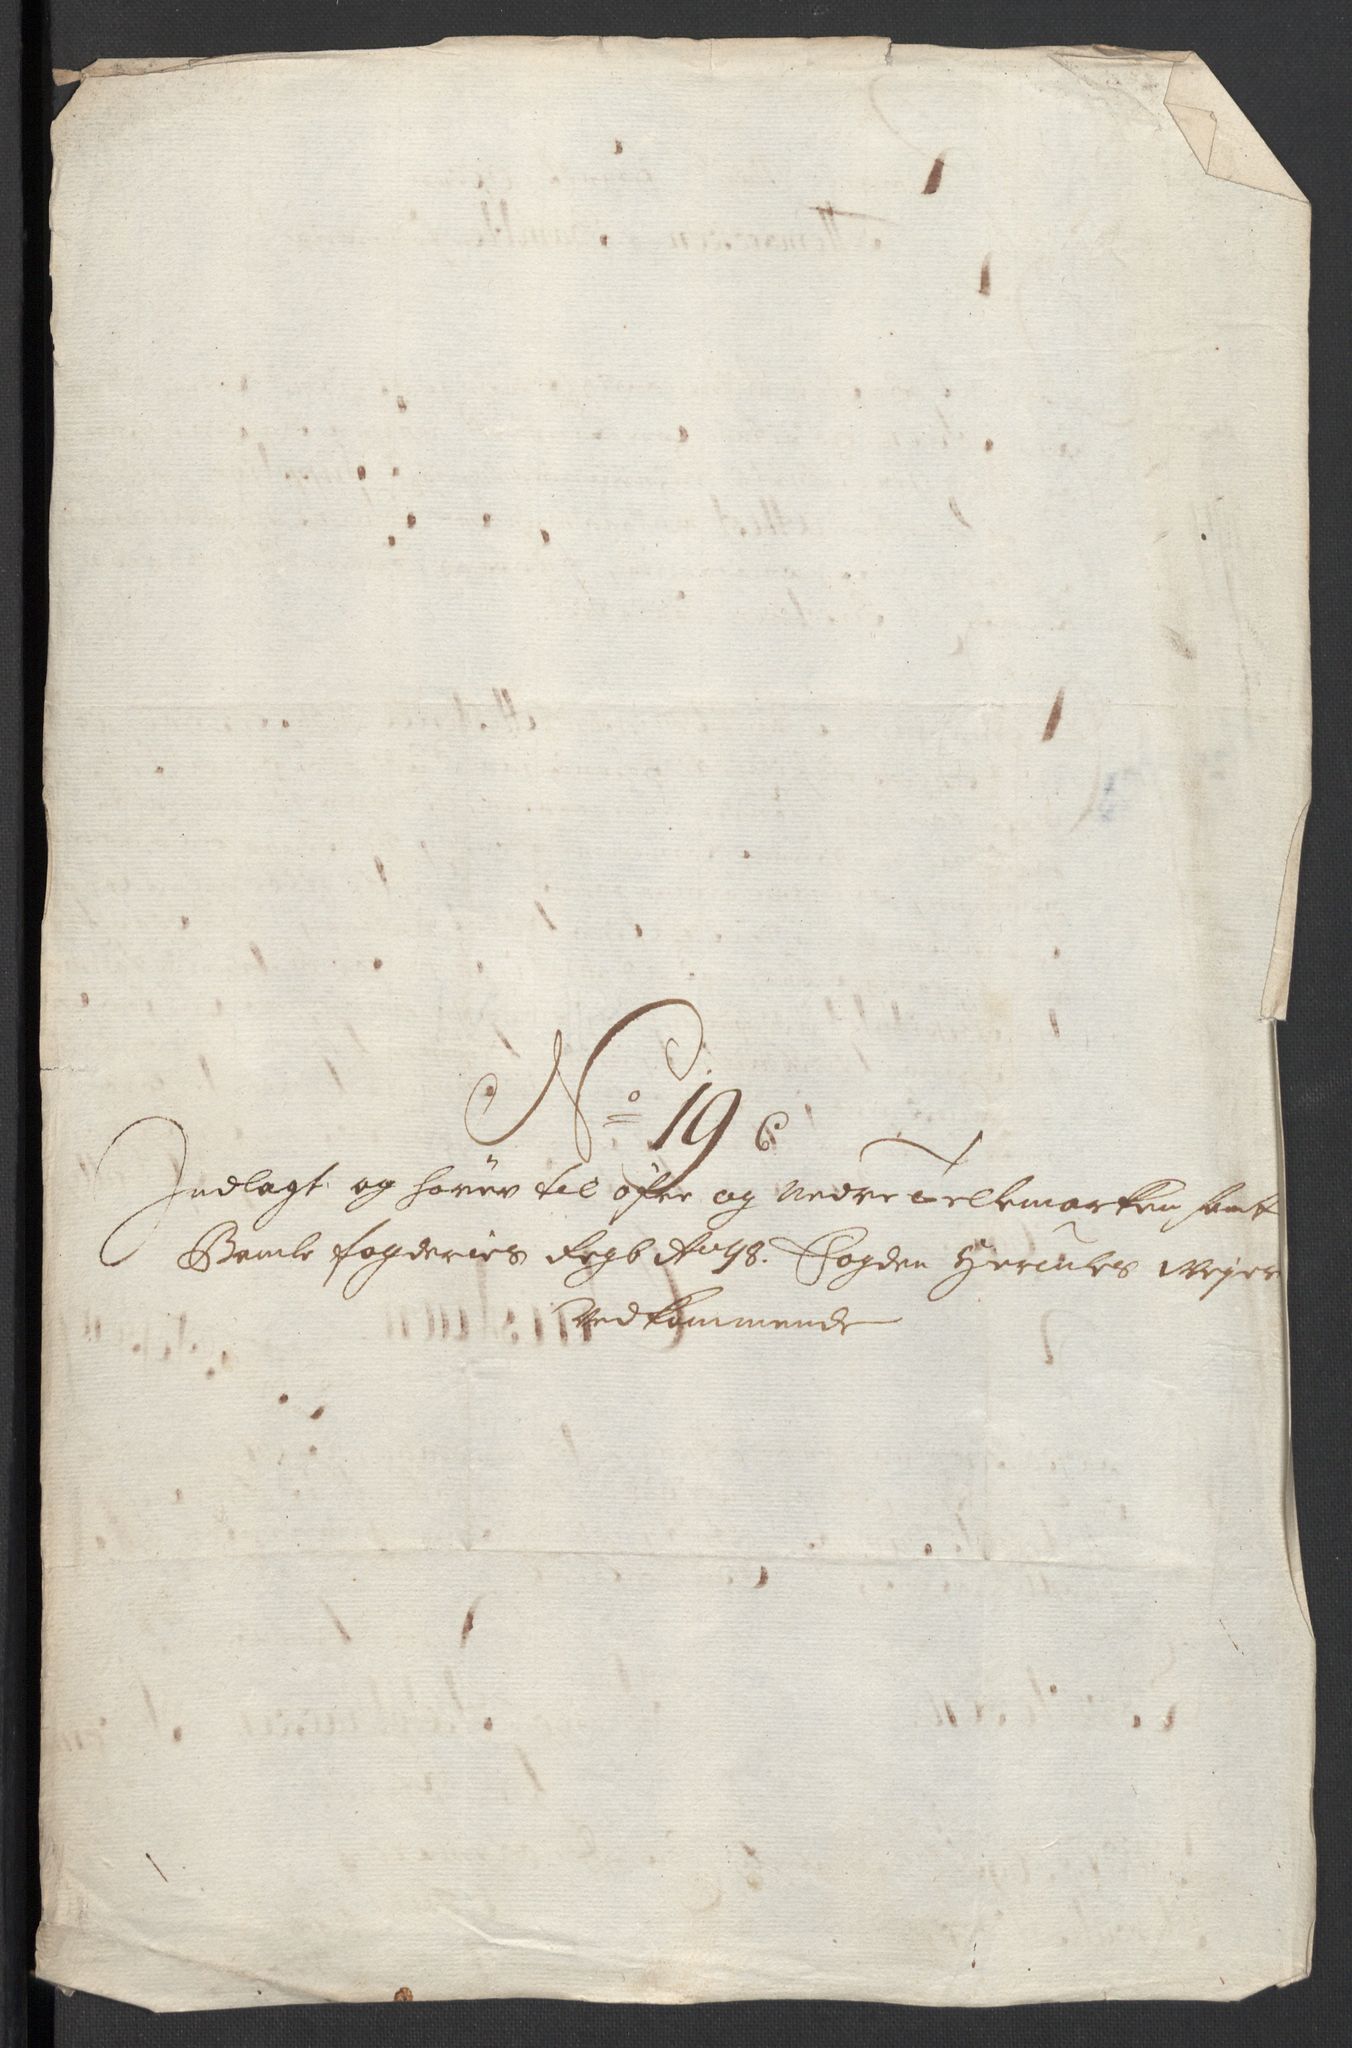 No 19 C
Indlagt og hører til øfre og Nedre Tellemarken samt
Bamle fogderies Regb Ao 98. Fogden Hercules Weyer
Vedkommende